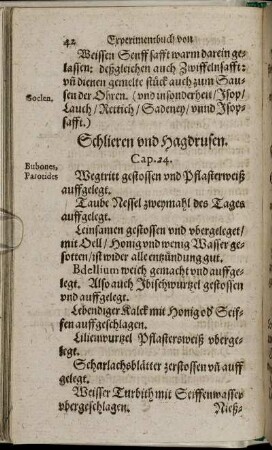 42 Experimentbuch von
Weissen Senff safft warm darein ge-
lassen: deßgleichen auch Zwiffelnsafft:
vñ dienen gemelte stück auch zum Sau-
sen der Ohren. (vnd insonderheit / Isop /
Lauch / Rettich / Sadeney / vnnd Isop-
safft.)
Schlieren vnd Hagdrusen.
Cap. 24.
Bubones,
Parotides
Wegtritt gestossen vnd Pflasterweiß
auffgelegt.
Taube Nessel zweymahl des Tages
auffgelegt.
Leinsamen gestossen vnd vbergeleget /
mit Oell / Honig vnd wenig Wasser ge-
sotten / ist wider alle entzündung gut.
Bdellium weich gemacht vnd auffge-
legt. Also auch Ibischwurtzel gestossen
vnd auffgelegt.
Lebendiger Kalck mit Honig od' Seif-
fen auffgeschlagen.
Lilienwurtzel Pflastersweiß vberge-
legt.
Scharlachsblätter zerstossen vñ auff
gelegt.
Weisser Turbith mit Seiffenwasser
vbergeschlagen. Nieß-